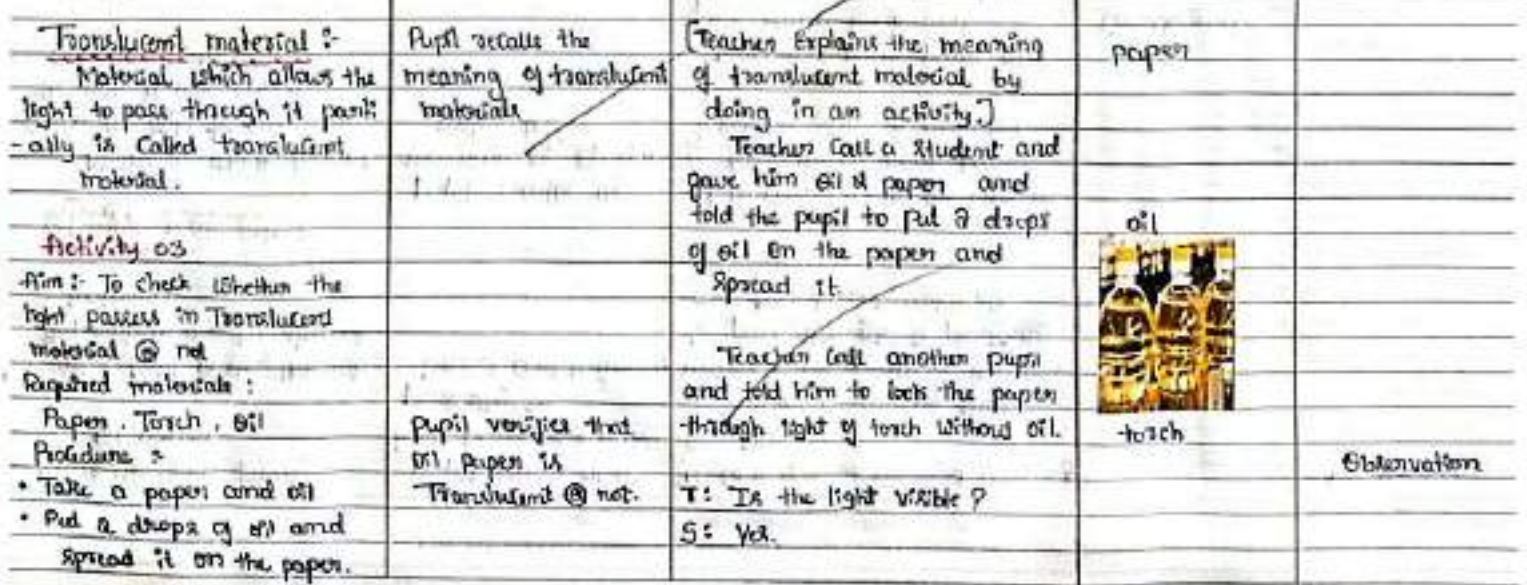 Translucent material :-
Material which allows the
light to pass through it parti
-ally is called translucent
material.
Activity 03
Aim :- To check whether the
light passess in Translucent
material or not
Required materials :
Paper, Torch, oil
Procedure :
• Take a paper and oil
• Put 2 drops of oil and
spread it on the paper.
Pupil recalls the
meaning of translucent
materials
pupil verifies that
oil paper is
Translucent or not.
[Teacher Explains the meaning
of translucent material by
doing in an activity.]
Teacher call a student and
gave him oil & paper and
told the pupil to put 2 drops
of oil on the paper and
spread it.
Teacher call another pupil
and told him to look the paper
through light of torch without oil.
T: Is the light visible ?
S: Yes.
paper
oil
torch
Observation